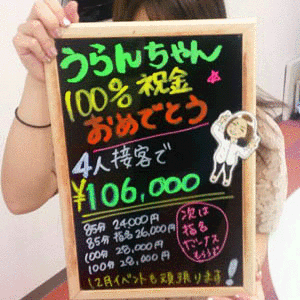 うらんちゃん
100% 祝金
おめでとう
4人接客で
¥106,000
85分 24,000円
85分 指名 26,000円
100分 28,000円
100分 28,000円
次は
指名
ボーナス
12月イベントも頑張ります!